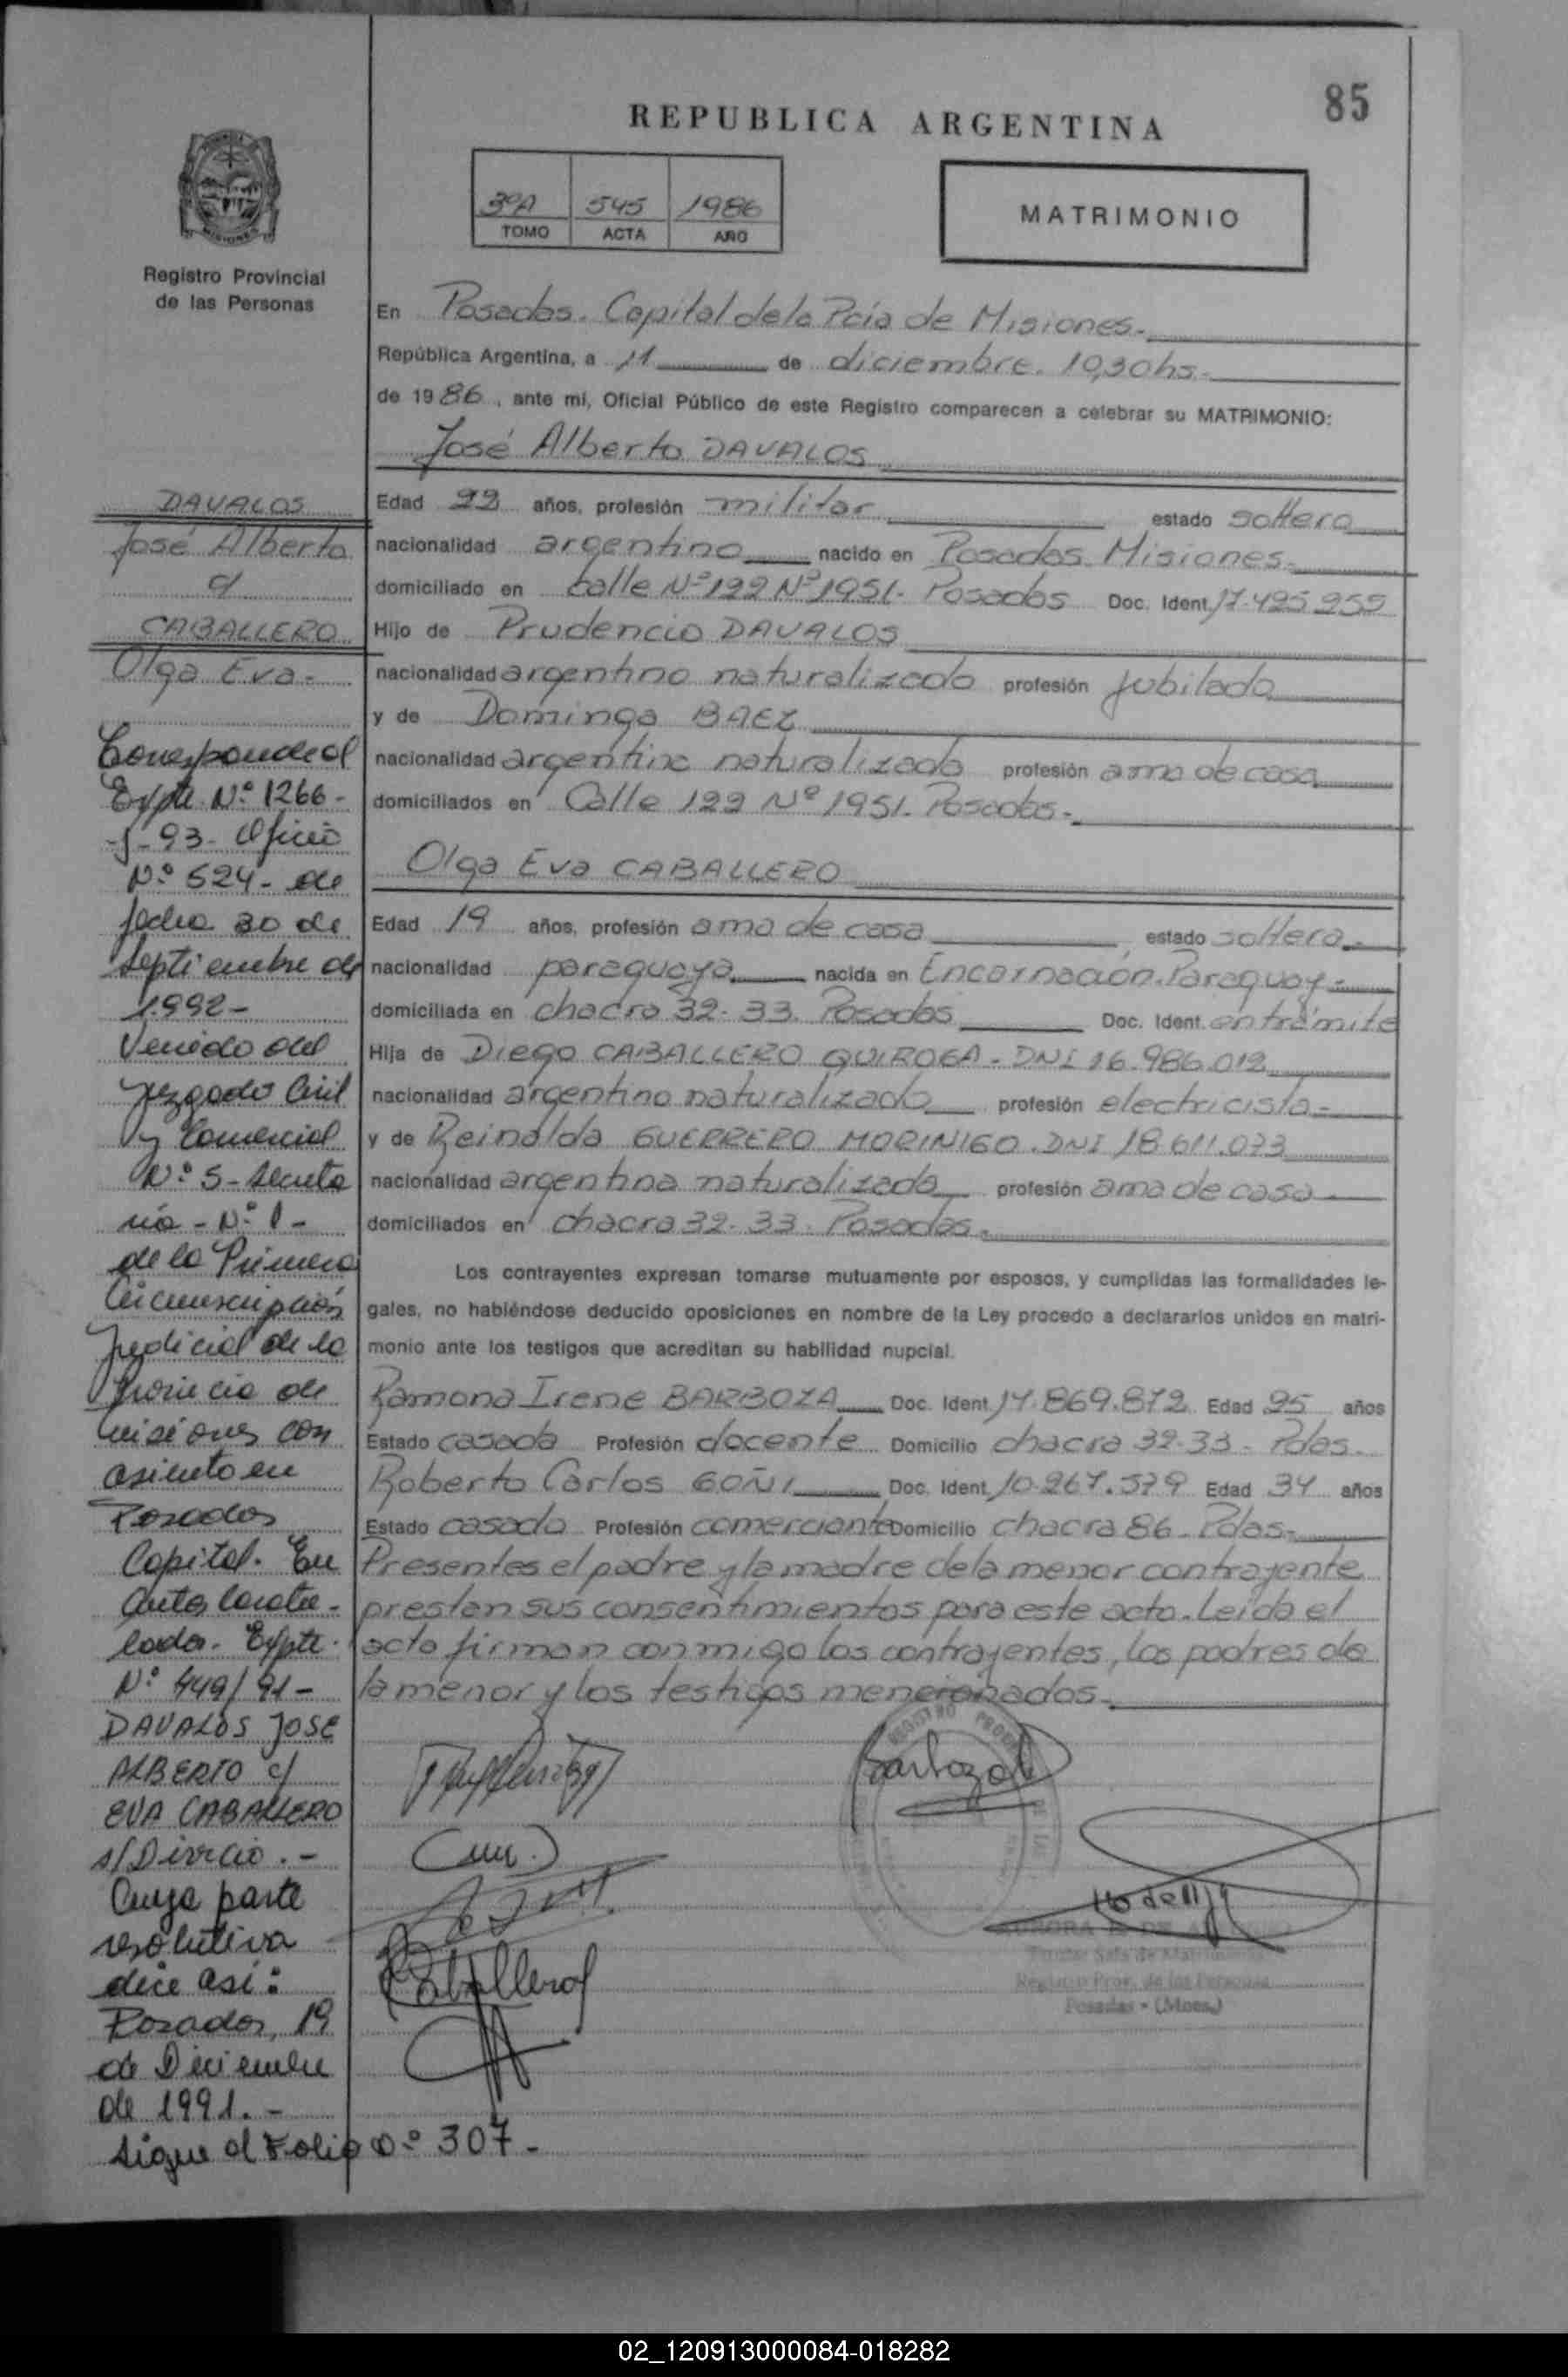 85
REPUBLICA ARGENTINA
3ºA 545 1986
TOMO ACTA AÑO
MATRIMONIO
MISIONES
Registro Provincial
de las Personas
En Posadas. Capital de la Pcia de Misiones.
República Argentina, a 11 de diciembre. 10,30hs.
de 1986, ante mi, Oficial Público de este Registro comparecen a celebrar su MATRIMONIO:
José Alberto DAVALOS
Edad 22 años, profesión militar estado soltero
nacionalidad argentino nacido en Posadas Misiones.
domiciliado en calle Nº122 Nº1951. Posadas Doc. Ident. 17.425.255
Hijo de Prudencio DAVALOS
nacionalidad argentino naturalizado profesión jubilado
y de Dominga BAEZ
nacionalidad argentina naturalizada profesión ama de casa
domiciliados en Calle 122 Nº 1951. Posadas.
Olga Eva CABALLERO
Edad 19 años, profesión ama de casa estado soltera.
nacionalidad paraguaya nacida en Encarnación. Paraguay
domiciliada en chacra 32-33. Posadas Doc. Ident. en trámite
Hija de Diego CABALLERO QUIROGA - DNI 16.986.012
nacionalidad argentino naturalizado profesión electricista
y de Reinalda GUERRERO MORINIGO. DNI 18.611.073
nacionalidad argentina naturalizada profesión ama de casa
domiciliados en chacra 32-33. Posadas.
Los contrayentes expresan tomarse mutuamente por esposos, y cumplidas las formalidades le-
gales, no habiéndose deducido oposiciones en nombre de la Ley procedo a declararlos unidos en matri-
monio ante los testigos que acreditan su habilidad nupcial.
Ramona Irene BARBOZA Doc. Ident. 14.869.872 Edad 25 años
Estado casada Profesión docente Domicilio chacra 32-33 - Pdas.
Roberto Carlos GOÑI Doc. Ident. 10.267.579 Edad 34 años
Estado casado Profesión comerciante Domicilio chacra 86 - Pdas.
Presentes el padre y la madre de la menor contrayente
prestan sus consentimientos para este acto. Leída el
acta firman conmigo los contrayentes, los padres de
la menor y los testigos mencionados.
DAVALOS
José Alberto
c/
CABALLERO
Olga Eva.
Corresponde al
Expte Nº 1266-
-J-93- Oficio
Nº 624- de
fecha 30 de
septiembre de
1.992-
Venido del
Juzgado Civil
y Comercial
Nº 5- Secreta
ría - Nº 1 -
de la Primera
Circunscripción
Judicial de la
Provincia de
Misiones con
asiento en
Posadas
Capital. En
autos caratu-
lados. Expte.
Nº 449/91-
DAVALOS JOSE
ALBERTO c/
EVA CABALLERO
s/Divorcio.-
Cuya parte
resolutiva
dice así:
Posadas, 19
de Diciembre
de 1991.-
Sigue al Folio Nº 307-
Caballero
Registro Prov. de las Personas
Posadas - (Mnes.)
02_120913000084-018282